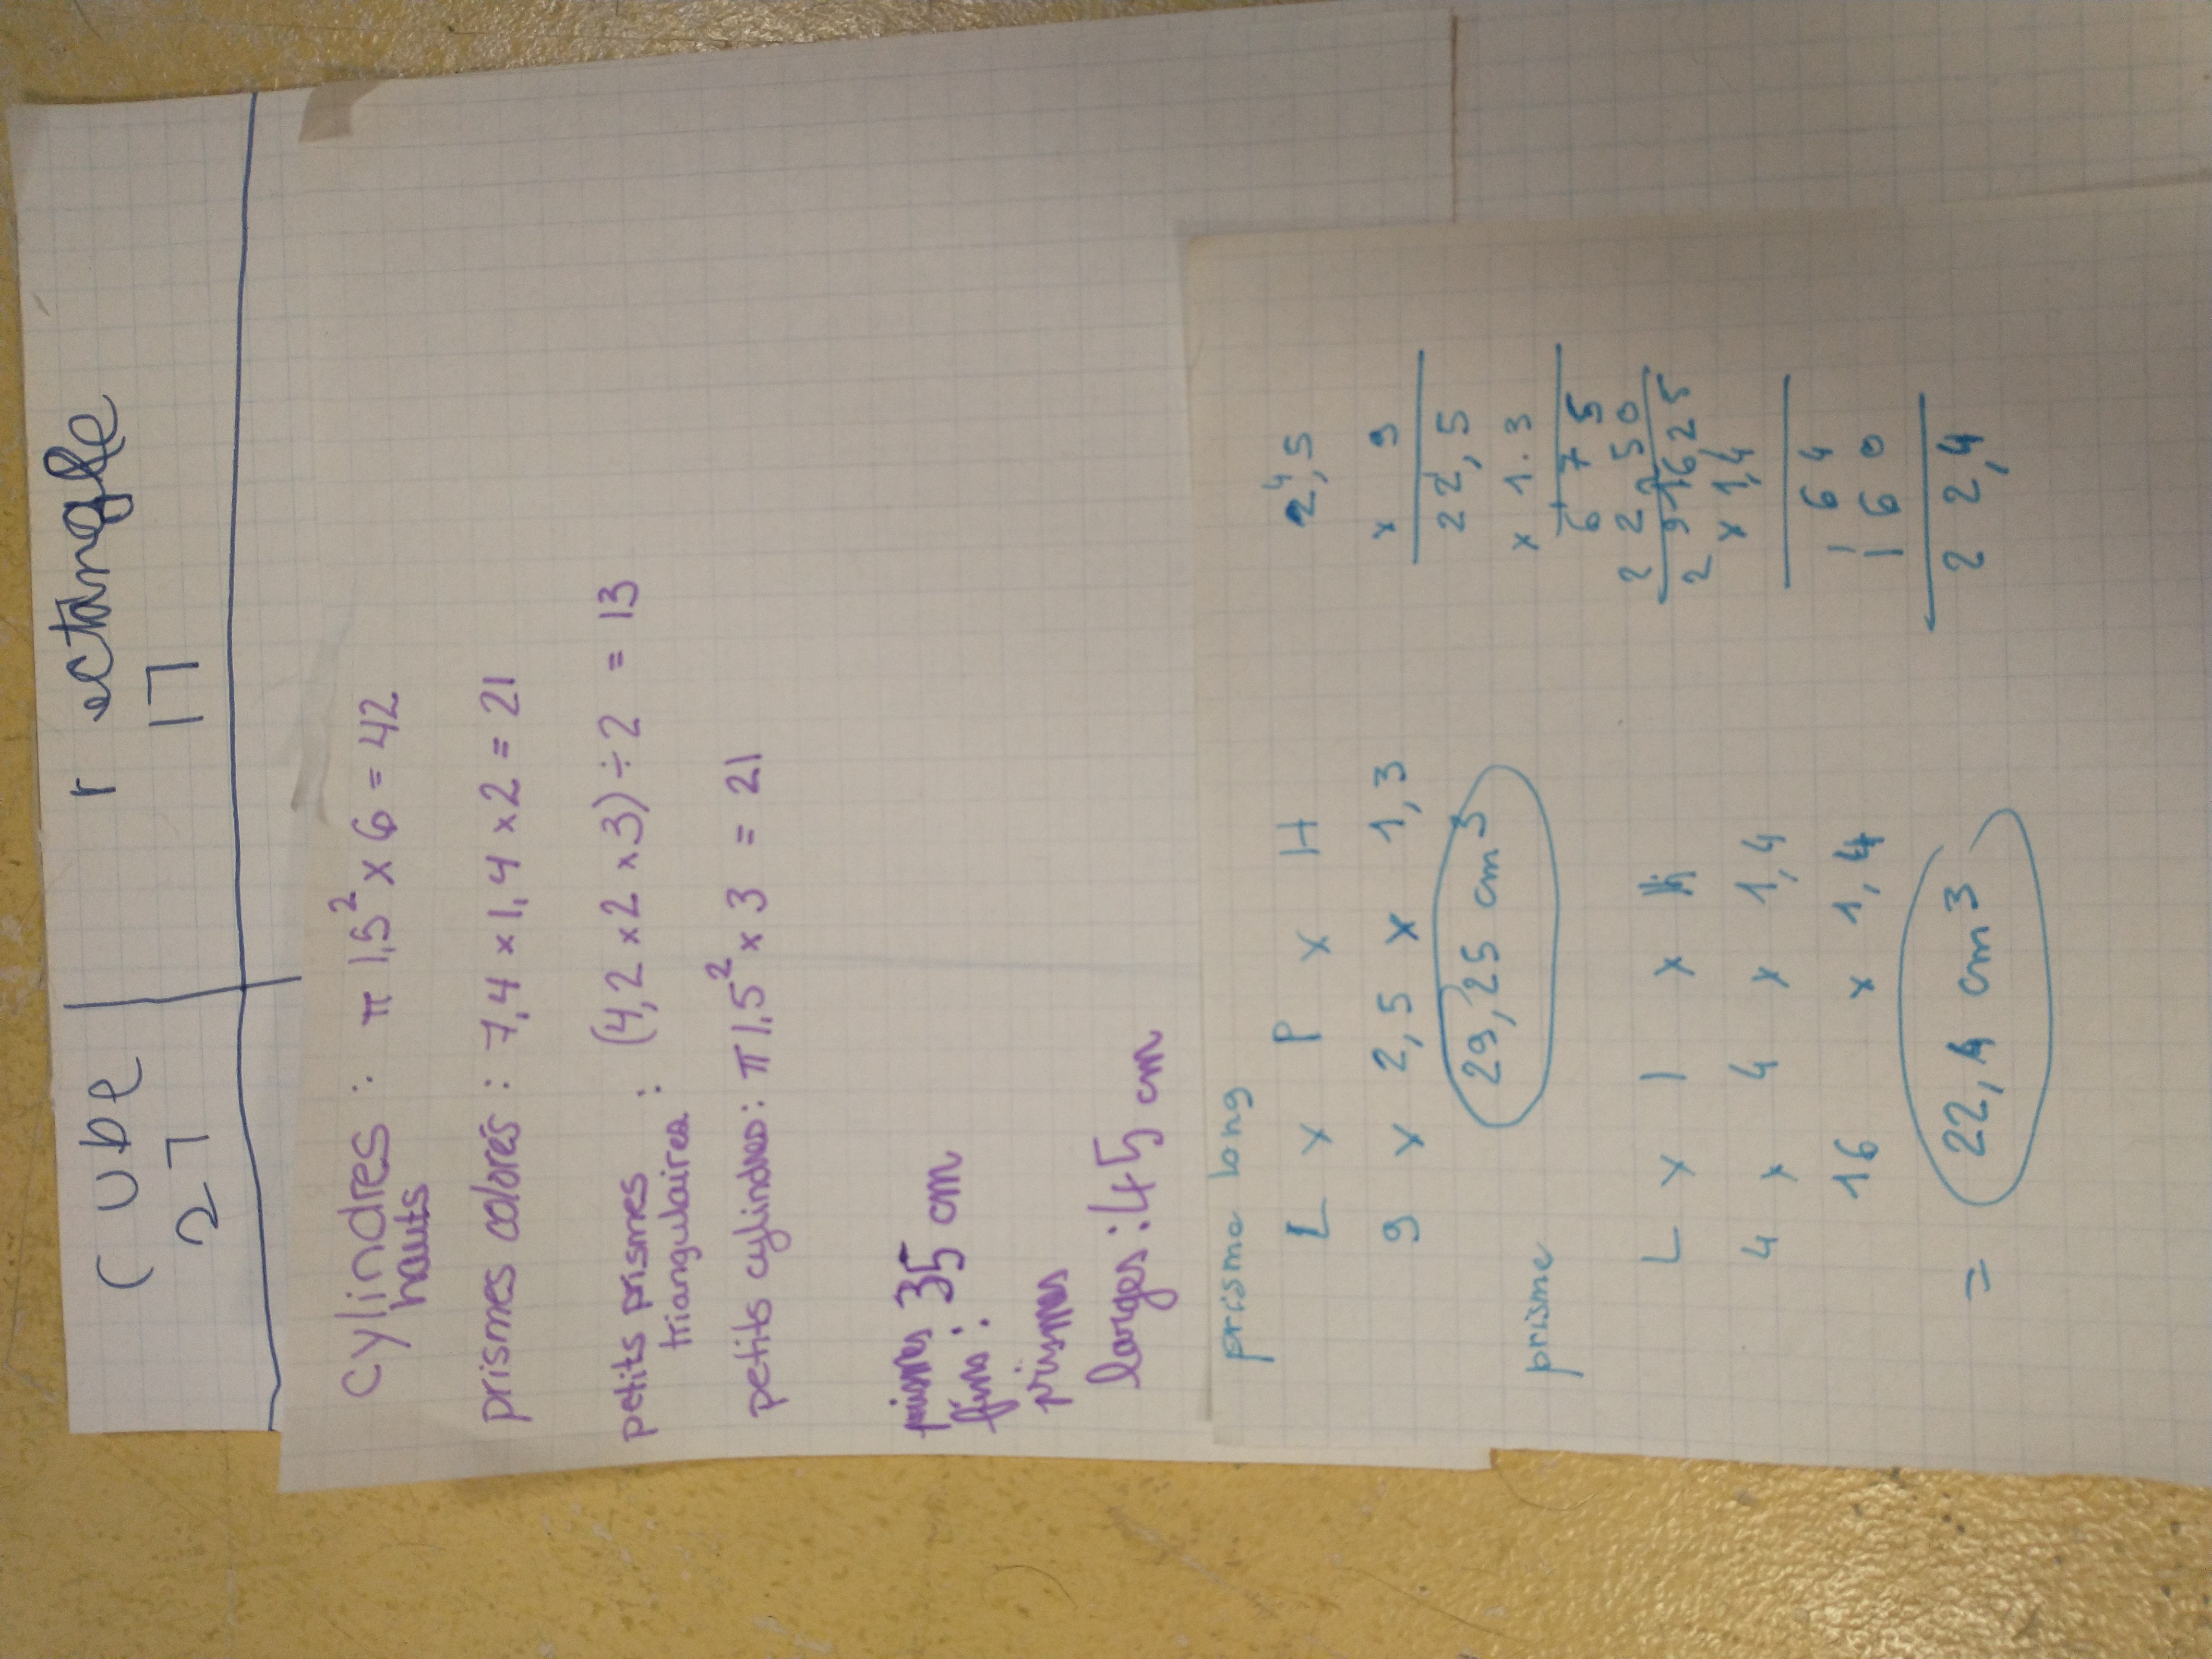 cube rectangle
27 17
cylindres : π 1,5² × 6 = 42
hauts
prismes colorés : 7,4 × 1,4 × 2 = 21
petits prismes : (4,2 × 2 × 3) ÷ 2 = 13
triangulaires
petits cylindres : π 1,5² × 3 = 21
prismes 35 cm
fins :
prismes
larges : 45 cm
prisme long
L × P × H
9 × 2,5 × 1,3
29,25 cm³
prisme
L × l ×
4 × 4 × 1,4
16 × 1,4
= 22,4 cm³
4
2,5
× 9
22,5
× 1.3
675
22 50
29 25
16
× 1,4
64
160
22,4